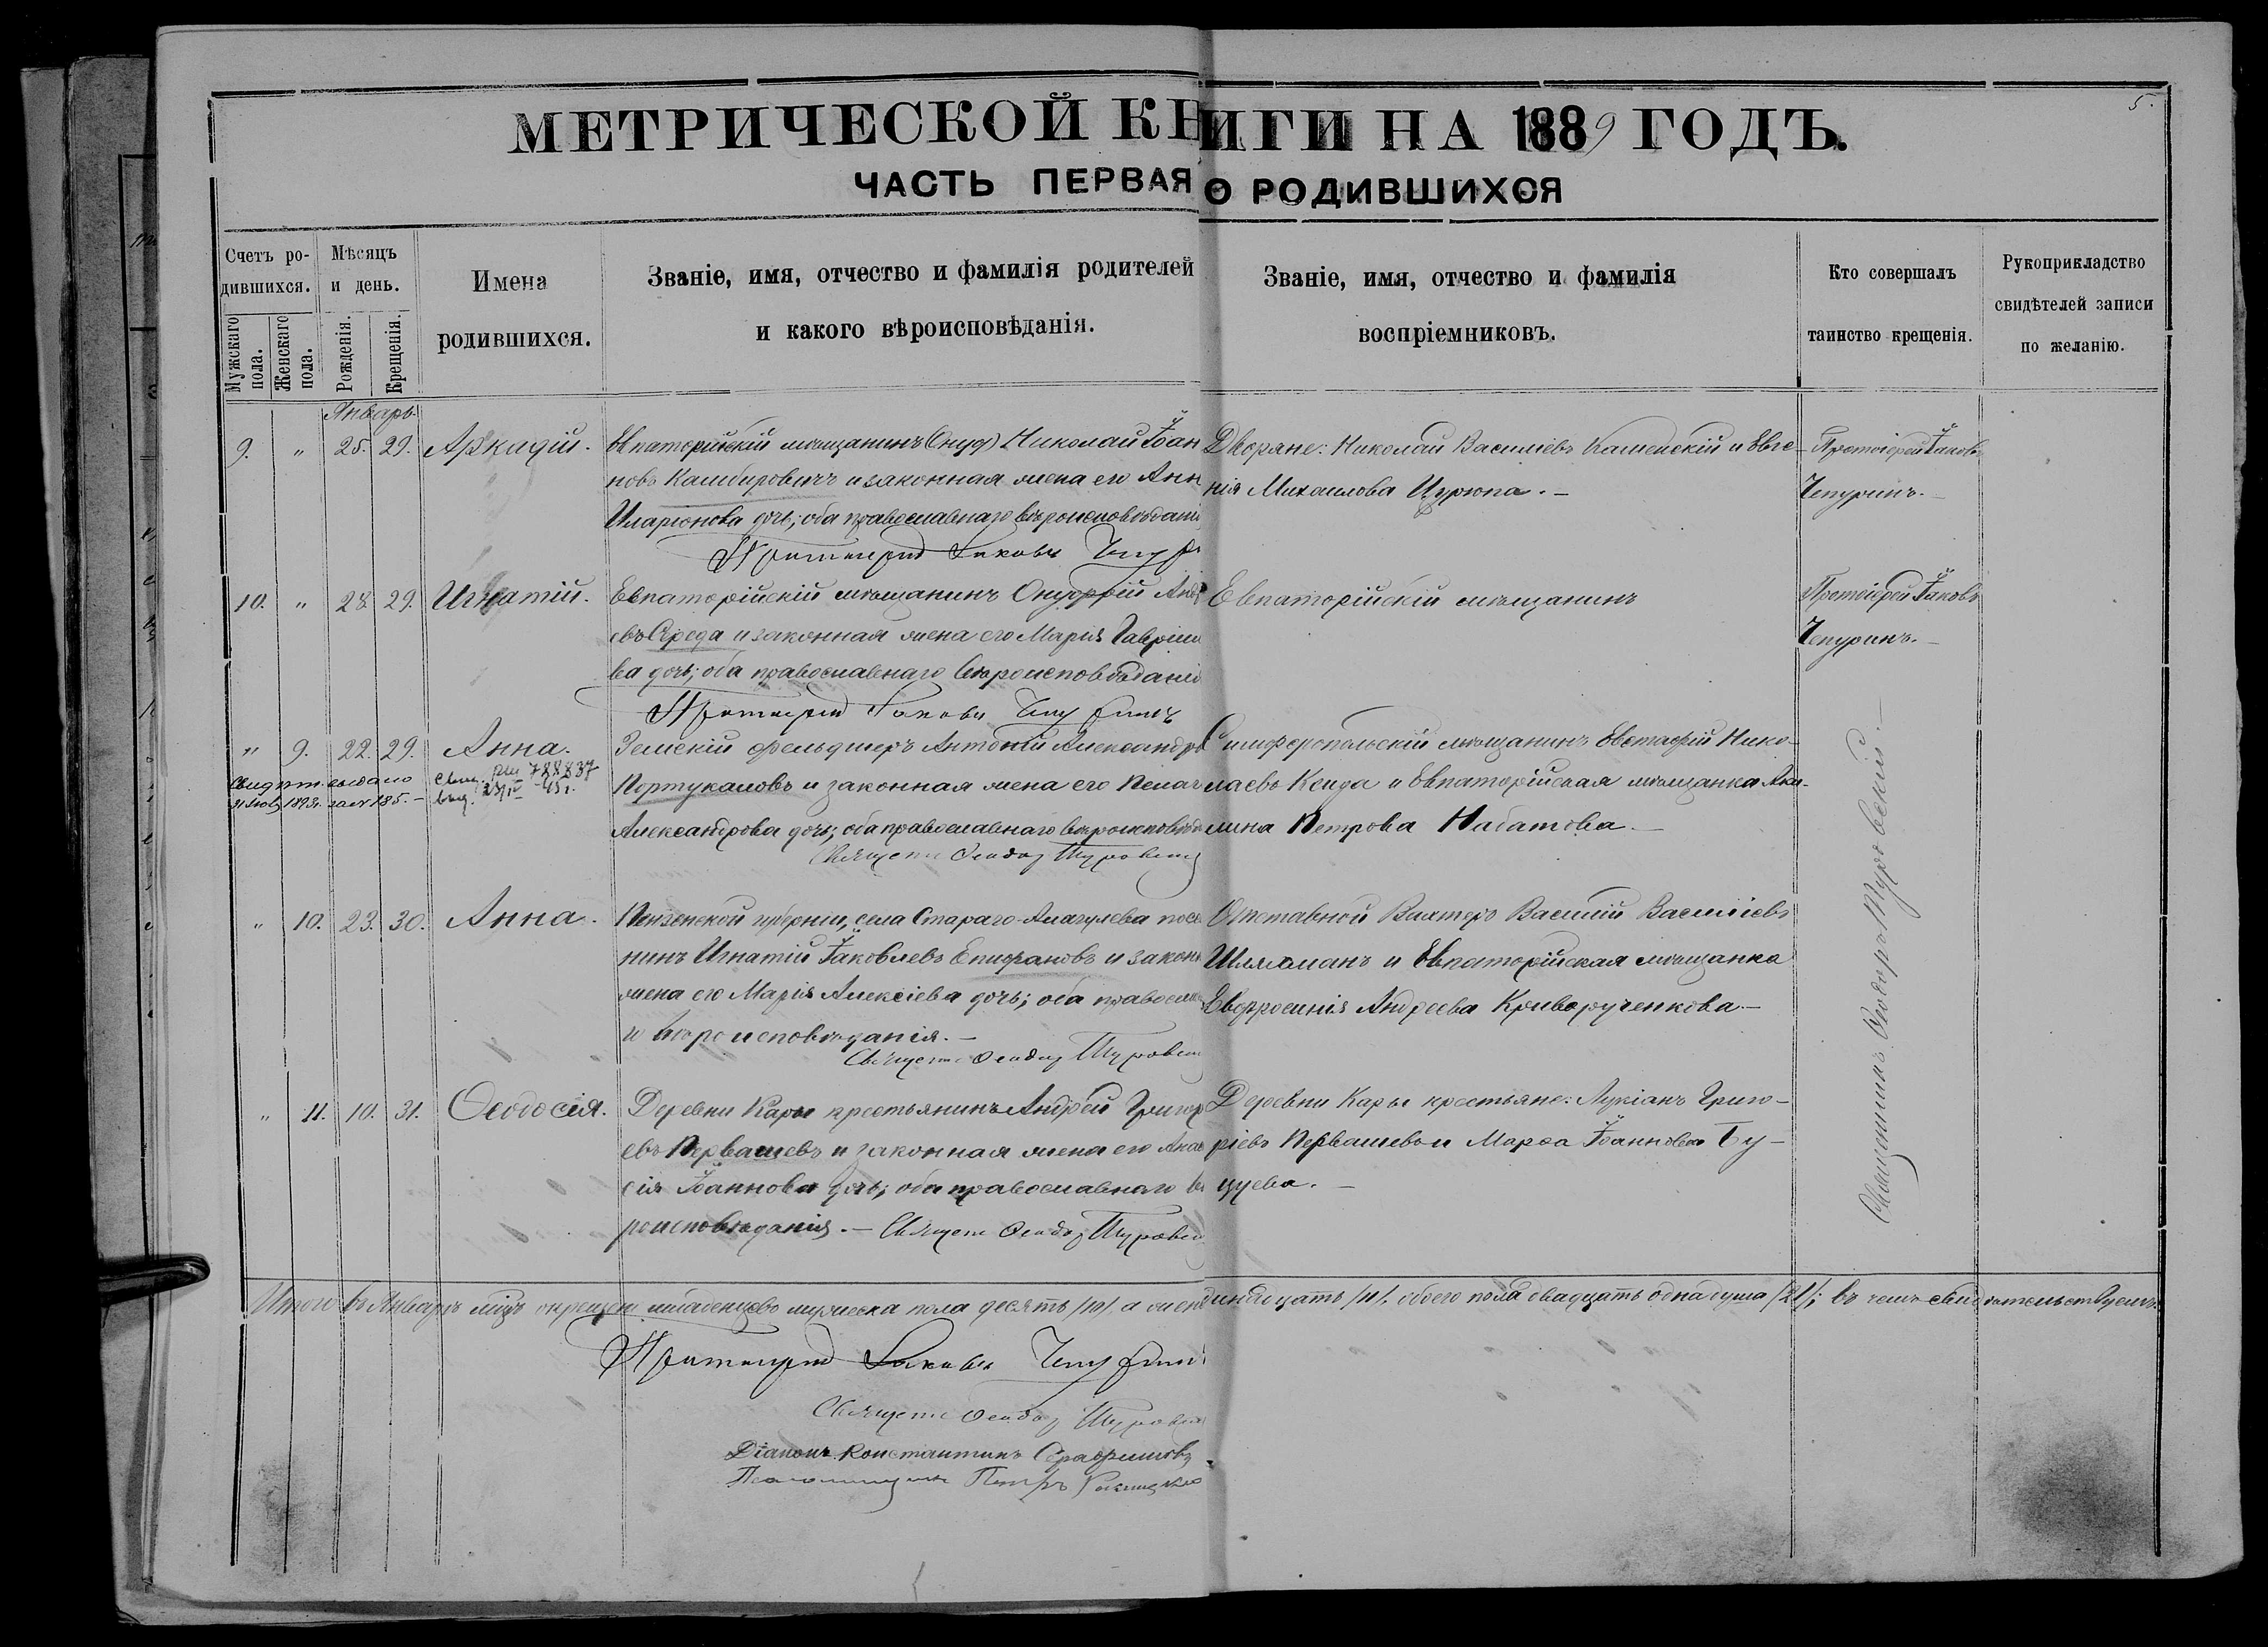 5.
МЕТРИЧЕСКОЙ КНИГИ НА 1889 ГОДЪ.
ЧАСТЬ ПЕРВАЯ О РОДИВШИХСЯ
Счетъ ро-
дившихся.
Мужскаго пола.
Женскаго пола.
Мѣсяцъ
и день.
Рожденія.
Крещенія.
Имена
родившихся.
Званіе, имя, отчество и фамилія родителей
и какого вѣроисповѣданія.
Званіе, имя, отчество и фамилія
воспріемниковъ.
Кто совершалъ
таинство крещенія.
Рукоприкладство
свидѣтелей записи
по желанію.
Январь
9. " 25. 29. Аркадій.
Евпаторійскій мѣщанинъ Николай Іоан
новъ Камбировичъ и законная жена его Анн
Иларіонова дочь; оба православнаго вѣроисповѣдані
Протоіерей Іаковъ Чепур
Дворяне: Николай Василіевъ Каменскій и Евге-
нія Михаилова Цурюпа.-
Протоіерей Іаковъ
Чепуринъ.-
10. " 28. 29. Игнатій.
Евпаторійскій мѣщанинъ Онуфрій Анд
евъ Середа и законная жена его Марія Гавріи
ва дочь; оба православнаго вѣроисповѣдані
Протоіерей Іаковъ Чепуринъ
Евпаторійскій мѣщанинъ
Протоіерей Іаковъ
Чепуринъ.-
" 9. 22. 29. Анна.
Свидѣт. выдано
1893г. за № 185.-
Земскій фельдшеръ Антоній Александро
Портукаловъ и законная жена его Пелаг
Александрова дочь; оба православнаго вѣроисповѣд
Священ Ѳеодор Туровск
Симферопольскій мѣщанинъ Евстафій Нико-
лаевъ Кеида и Евпаторійская мѣщанка Аки-
лина Петрова Набатова.-
" 10. 23. 30. Анна.
Пензенской губерніи, села Стараго- посе
нинъ Игнатій Іаковлевъ Епифановъ и закон
жена его Марія Алексіева дочь; оба правосла
го вѣроисповѣданія.-
Священ Ѳеодор Туровск
Отставной Вахтеръ Василій Василіевъ
Шляхманъ и Евпаторійская мѣщанка
Евфросинія Андреева Криворученкова.-
" 11. 10. 31. Ѳеодосія.
Деревни Кары крестьянинъ Андрей Григор
евъ Первашевъ и законная жена его Анас
сія Іоаннова дочь; оба православнаго вѣ
роисповѣданія.- Священ Ѳеодор Туровск
Деревни Кары крестьяне: Лукіанъ Григо-
ріевъ Первашевъ и Марѳа Іоаннова Бу-
цуева.-
Священникъ Ѳеодоръ Туровскій.-
Итого въ Январѣ мцѣ окрещено младенцевъ мужеска пола десять /10/, а женска одинадцать /11/, обоего пола двадцать одна душа /21/; въ чемъ свидѣтельствуемъ
Протоіерей Іаковъ Чепурин
Священ Ѳеодор Туровск
Діаконъ Константинъ Серафимовъ
Псаломщикъ Петръ